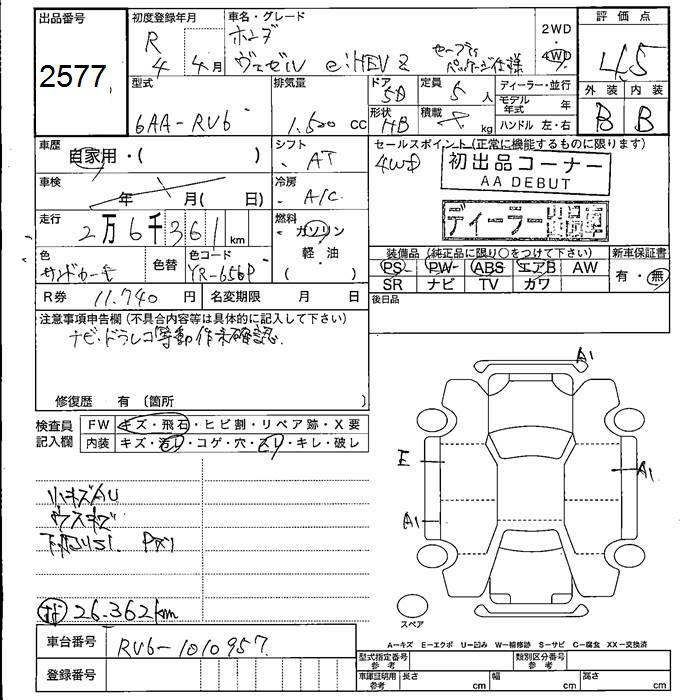 出品番号
2577
初度登録年月
R
4年 4月
車名・グレード
ホンダ
ヴェゼル e:HEV Z セーフティパッケージ仕様
2WD
4WD
評価点
4.5
外装 内装
B B
型式
6AA-RV6
排気量
1.500 cc
ドア
5D
形状
HB
定員
5人
積載
kg
ディーラー・並行
モデル年式 年
ハンドル 左・右
車歴
自家用・( )
シフト
AT
セールスポイント(正常に機能するものに限ります)
4WD
初出品コーナー
AA DEBUT
ディーラー
車検
年 月( 日)
冷房
A/C
走行
2万6千361km
燃料
ガソリン
軽・油
( )
色
サンドカーキ
色替
色コード
YR-656P
装備品(純正品に限り○をつけて下さい)
PS PW ABS エアB AW
SR ナビ TV カワ
新車保証書
有・無
R券 11.740円
名変期限 月 日
後日品
注意事項申告欄(不具合内容等は具体的に記入して下さい)
ナビ・ドラレコ等動作未確認.
修復歴 有〔箇所 〕
検査員
記入欄
FW キズ・飛石・ヒビ割・リペア跡・X要
内装 キズ・汚レ・コゲ・穴・スレ・キレ・破レ
A1
E
A1
A1
小キズAU
ウスキズ
26.362km
スペア
車台番号
RV6-1010957
登録番号
A-キズ E-エクボ U-凹み W-補修跡 S-サビ C-腐食 XX-交換済
型式指定番号
参考
類別区分番号
参考
車庫証明用
参考
長さ cm
幅 cm
高さ cm